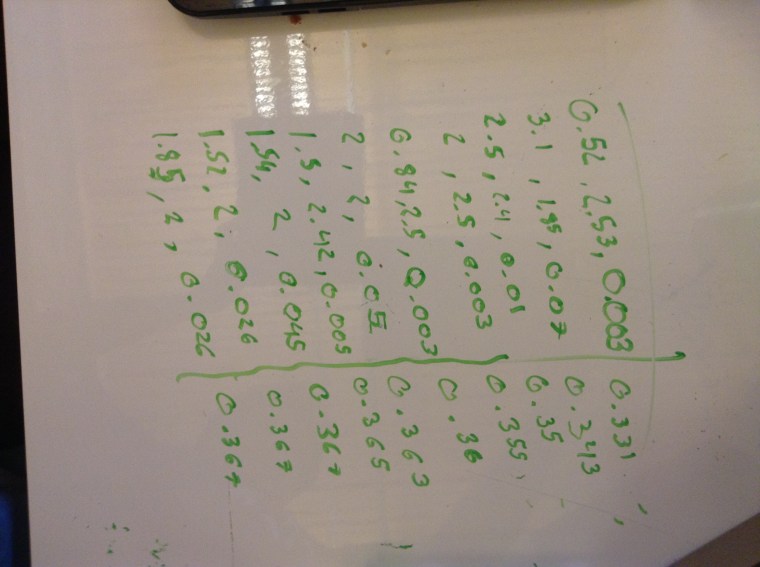 0.52, 2.53, 0.003 0.331
3.1, 1.95, 0.07 0.343
2.5, 2.4, 0.01 0.35
2, 2.5, 0.003 0.355
0.84, 2.5, 0.003 0.36
2, 2, 0.05 0.363
1.5, 2.42, 0.005 0.365
1.54, 2, 0.045 0.367
1.52, 2, 0.026 0.367
1.85, 2, 0.026 0.367